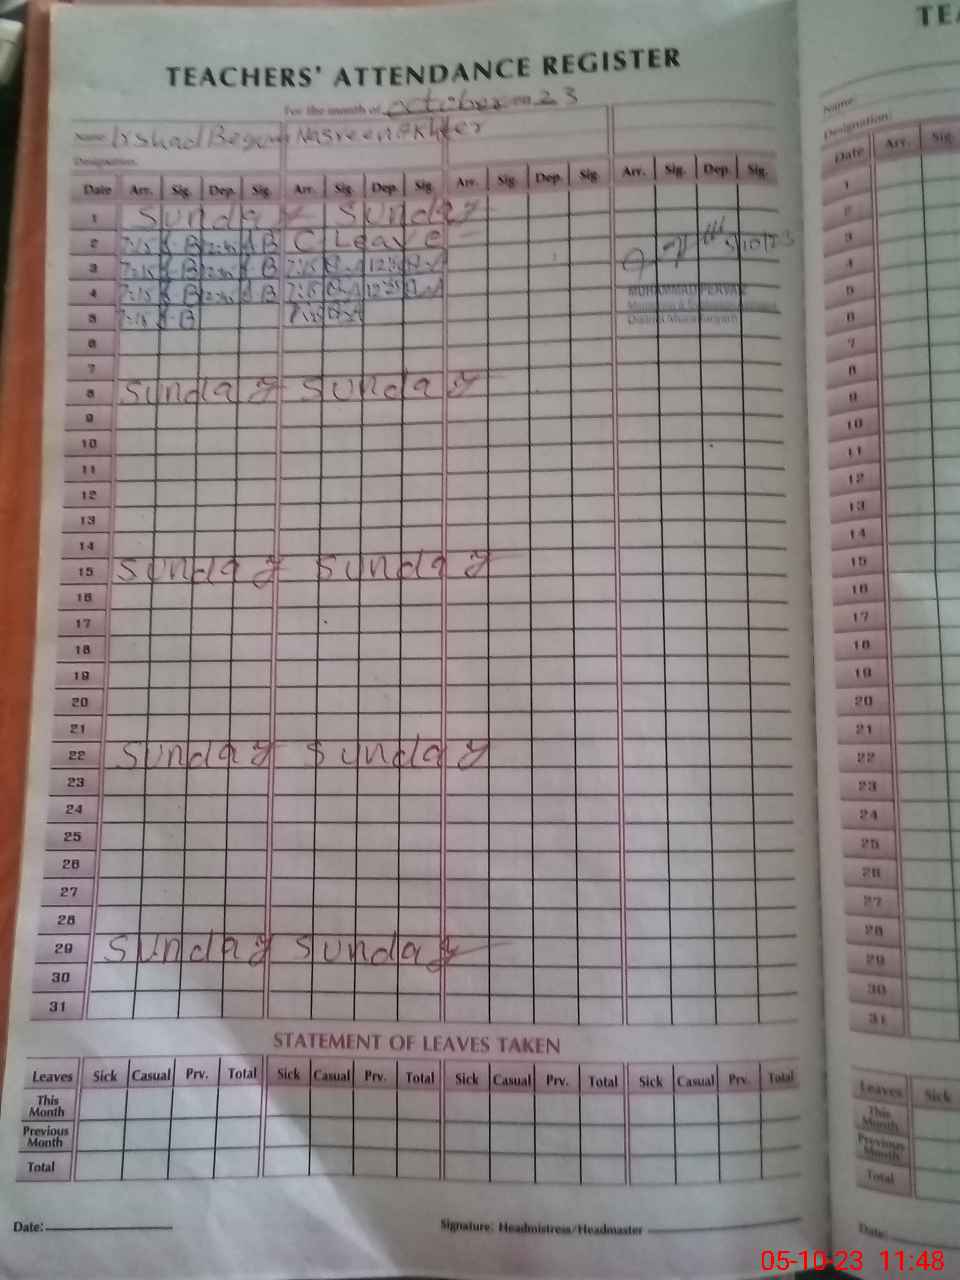 TEACHERS' ATTENDANCE REGISTER
For the month of October 2023
Name: Irshad Begum Nasreen Akhter
Designation:
Date Arr. Sig. Dep. Sig. Arr. Sig. Dep. Sig. Arr. Sig. Dep. Sig. Arr. Sig. Dep. Sig.
1 Sunday Sunday
2 7:15 B B C Leave
3 7:15 B B 7:15
4 7:15 B B 7:15
5 7:15 B
5/10/23
MUHAMMAD PERVAIZ
6
7
8 Sunday Sunday
9
10
11
12
13
14
15 Sunday Sunday
16
17
18
19
20
21
22 Sunday Sunday
23
24
25
26
27
28
29 Sunday Sunday
30
31
STATEMENT OF LEAVES TAKEN
Leaves Sick Casual Prv. Total Sick Casual Prv. Total Sick Casual Prv. Total Sick Casual Prv. Total
This Month
Previous Month
Total
Date: Signature: Headmistress/Headmaster
TEA
Name:
Designation:
Date Arr. Sig.
1
2
3
4
5
6
7
8
9
10
11
12
13
14
15
16
17
18
19
20
21
22
23
24
25
26
27
28
29
30
31
Leaves Sick
This Month
Previous Month
Total
Date:
05-10-23 11:48